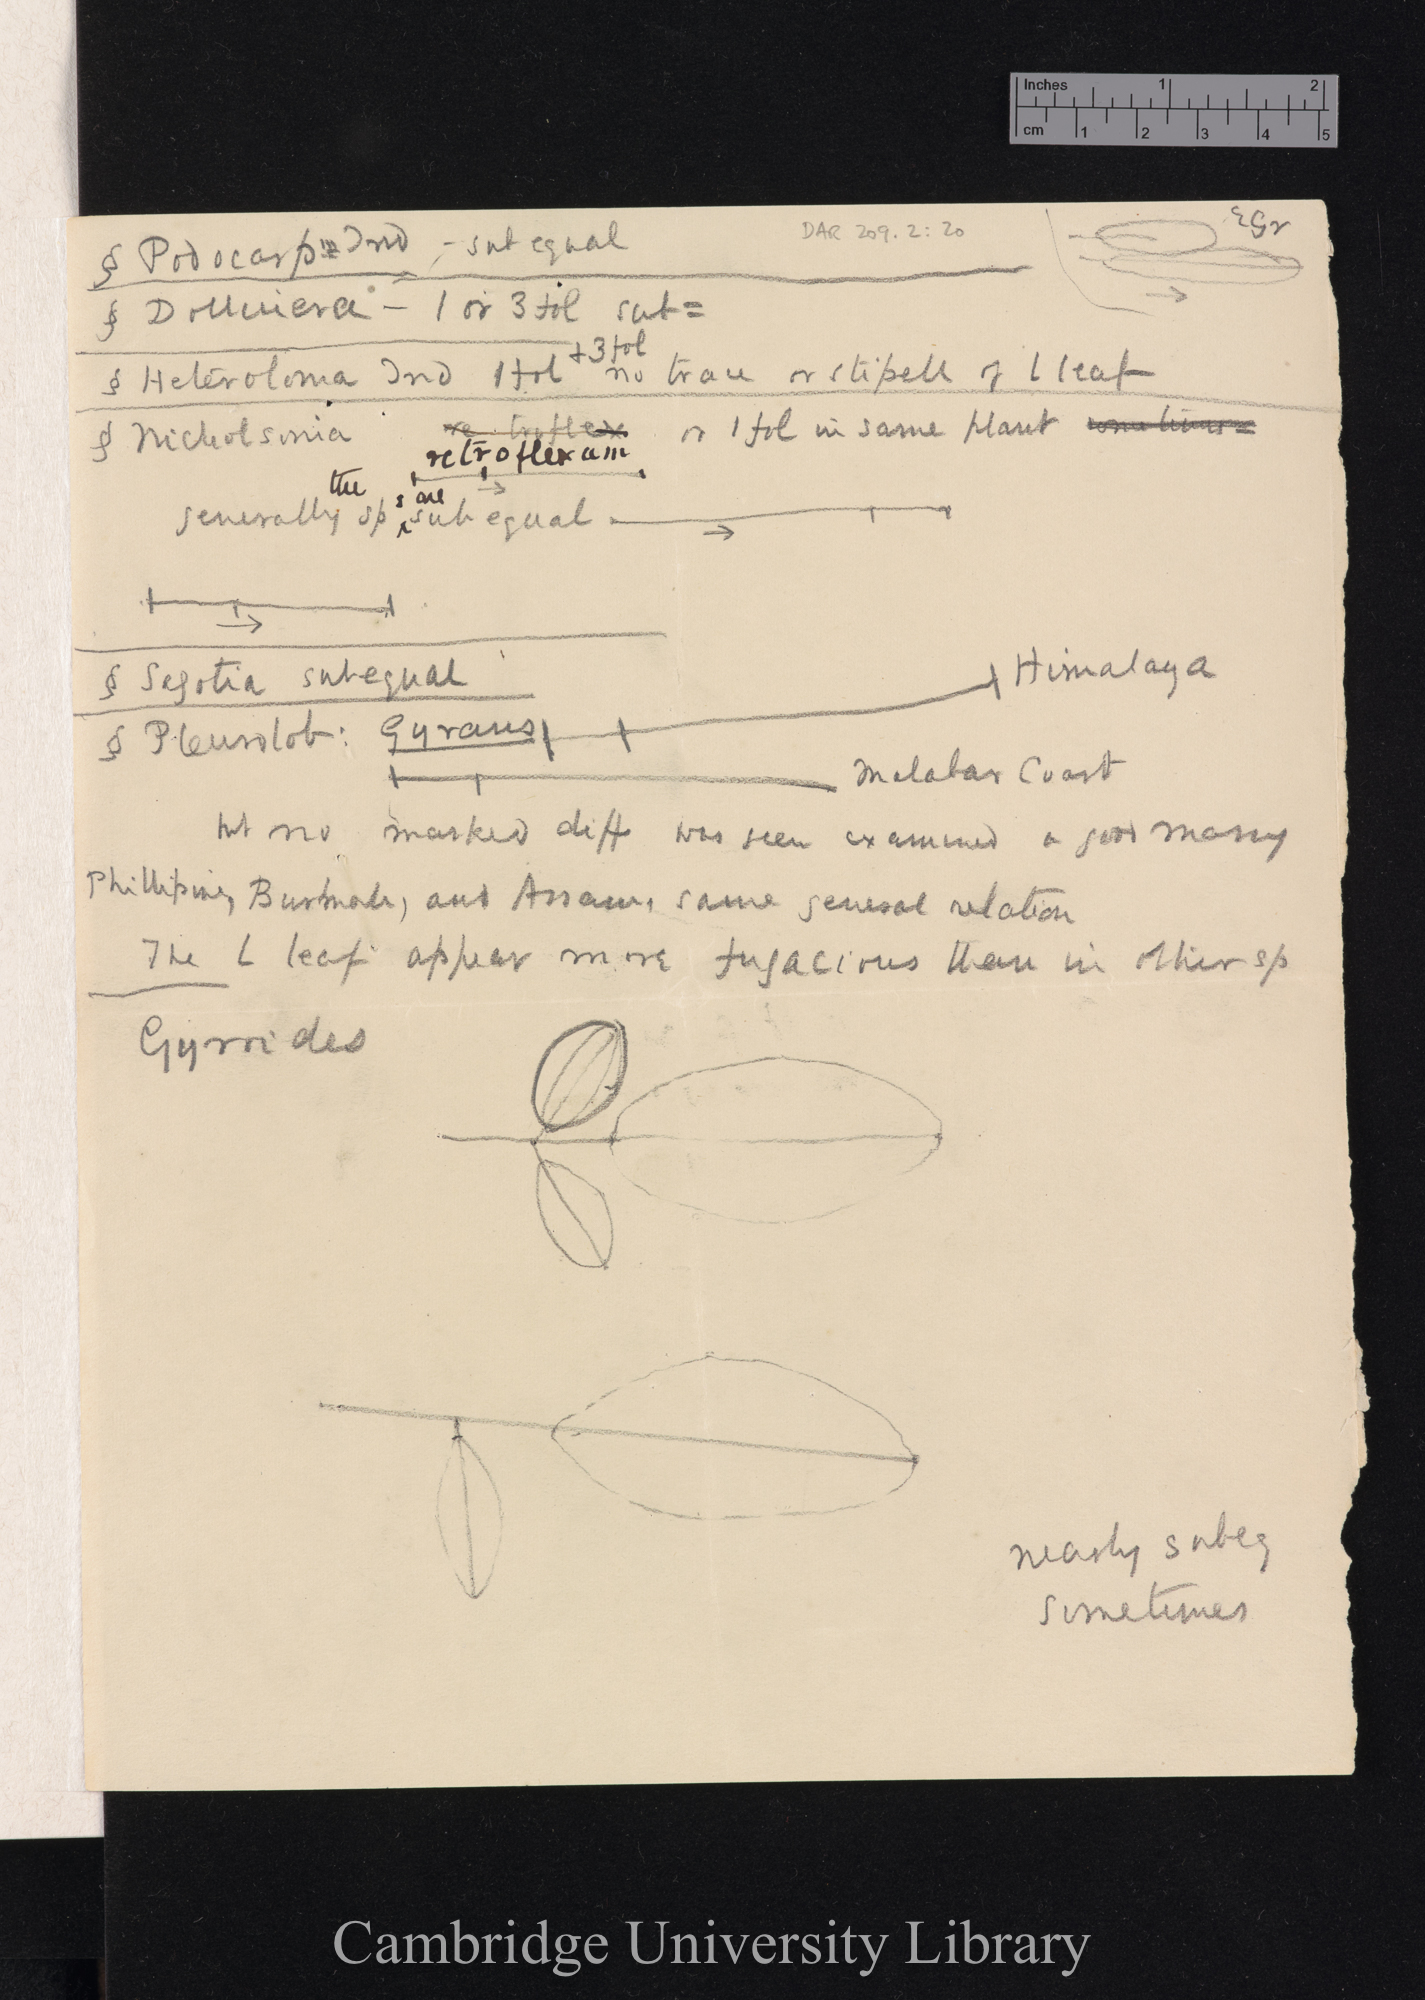 Inches 1 2
cm 1 2 3 4 5
DAR 209.2:20
§ Podocarp Ind – subequal
§ Dollinera – 1 or 3 fol sub=
+ 3 fol
§ Heteroloma Ind 1 fol no trace or stipell of L leaf
§ Nicholsonia retroflex or 1 fol in same plant sometimes =
retroflexum
the s are
generally sp subequal
§ Sagotia subequal
Himalaya
§ Pleurolob: Gyrans
Malabar Coast
but no marked diff was seen examined a good many
Phillipine, Burmah, and Assam, same general relation
The L leaf appear more fugacious than in other sp
Gyroides
nearly subeq
sometimes
Cambridge University Library